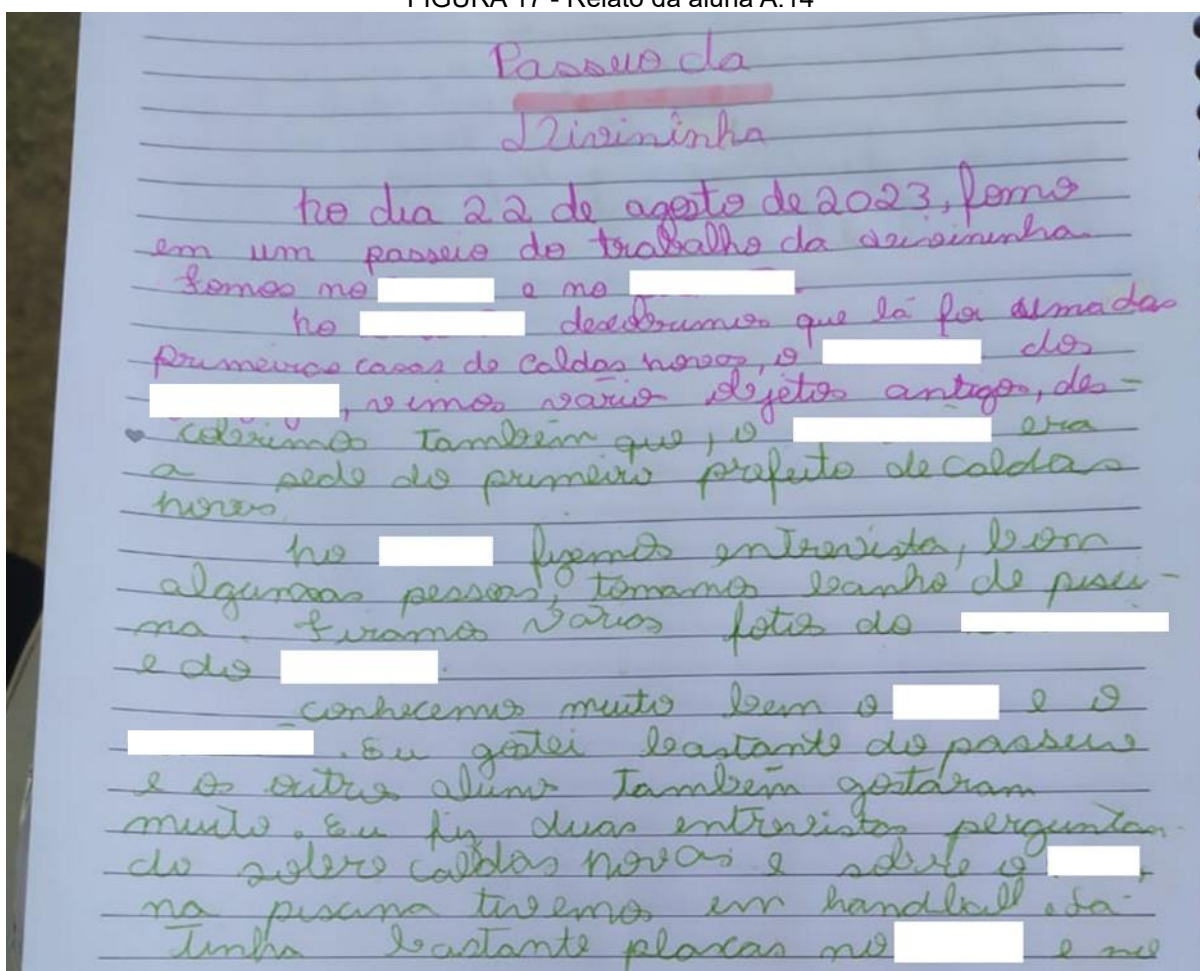 FIGURA 17 - Relato da aluna A.14
Passeio da
Divininha
no dia 22 de agosto de 2023, fomo
em um passeio do trabalho da divininha
fomos no e no
no descobrimos que lá foi uma das
primeiras casas de caldas novas, o dos
, vimos vario objetos antigos, des-
cobrimos também que, o era
a sede do primeiro prefeito de caldas
novas
no fizemos entrevista, com
algumas pessoas, tomamos banho de pisci-
na. tiramos vários fotos do
e do .
conhecemos muito bem o e o
. Eu gostei bastante do passeio
e os outros alunos também gostaram
muito. Eu fiz duas entrevistas perguntan-
do sobre caldas novas e sobre o ,
na piscina tivemos em handball. La
tinha bastante placas no e no